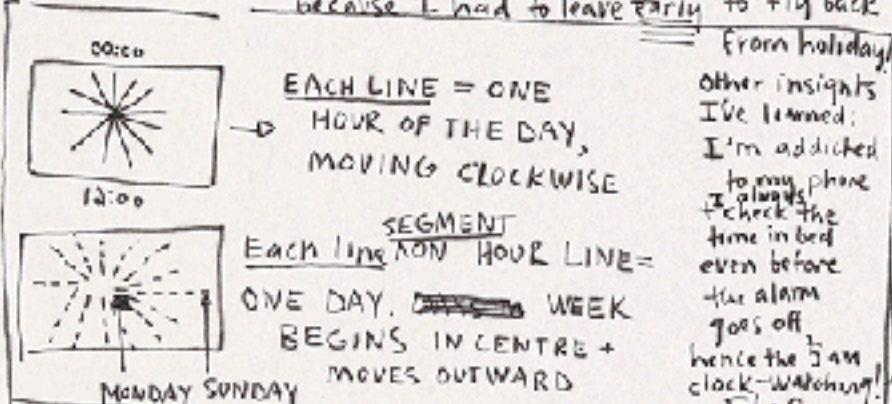 because I had to leave early to fly back
from holiday!
00:00
12:00
EACH LINE = ONE
HOUR OF THE DAY,
MOVING CLOCKWISE
SEGMENT
Each line ON HOUR LINE=
ONE DAY. WEEK
BEGINS IN CENTRE +
MOVES OUTWARD
MONDAY SUNDAY
Other insights
I've learned:
I'm addicted
to my phone
I always
+ check the
time in bed
even before
the alarm
goes off,
hence the 5am
clock-watching!